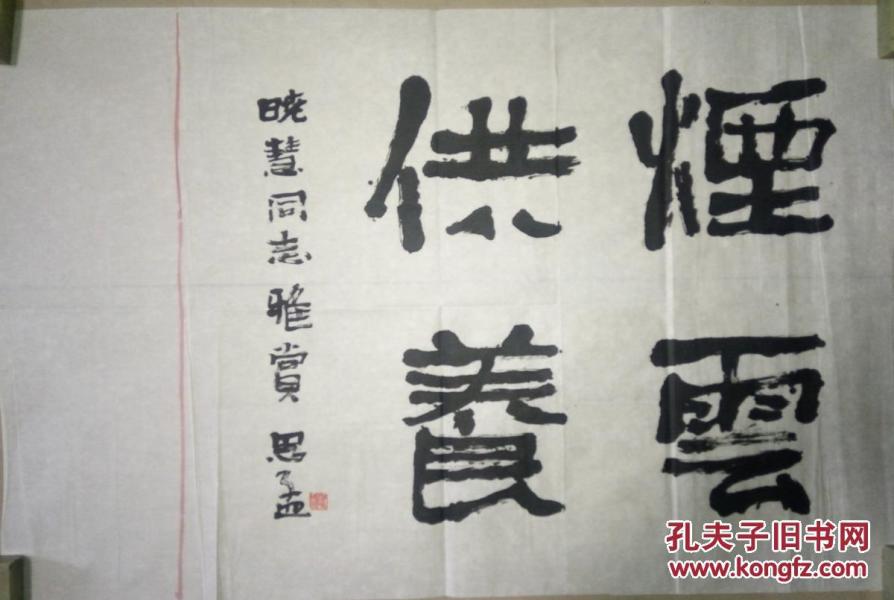 煙雲
供養
晓慧同志雅賞 思孟
孔夫子旧书网
www.kongfz.com